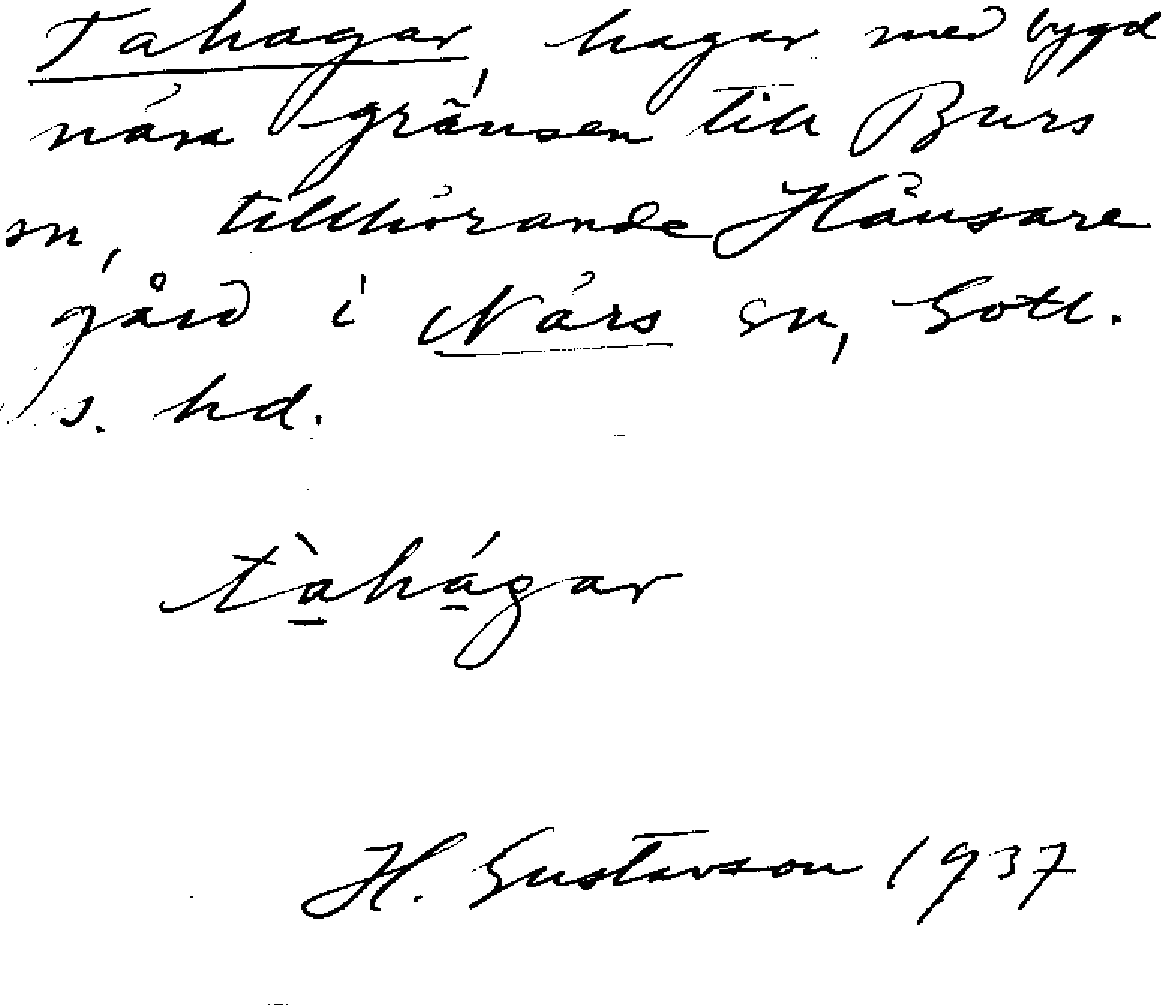 Tahagar, hagar med bygd
nära gränsen till Burs
sn, tillhörande Hånsare
gård i Närs sn, Gotl.
s. hd.
tàhágar
H. Gustavson 1937